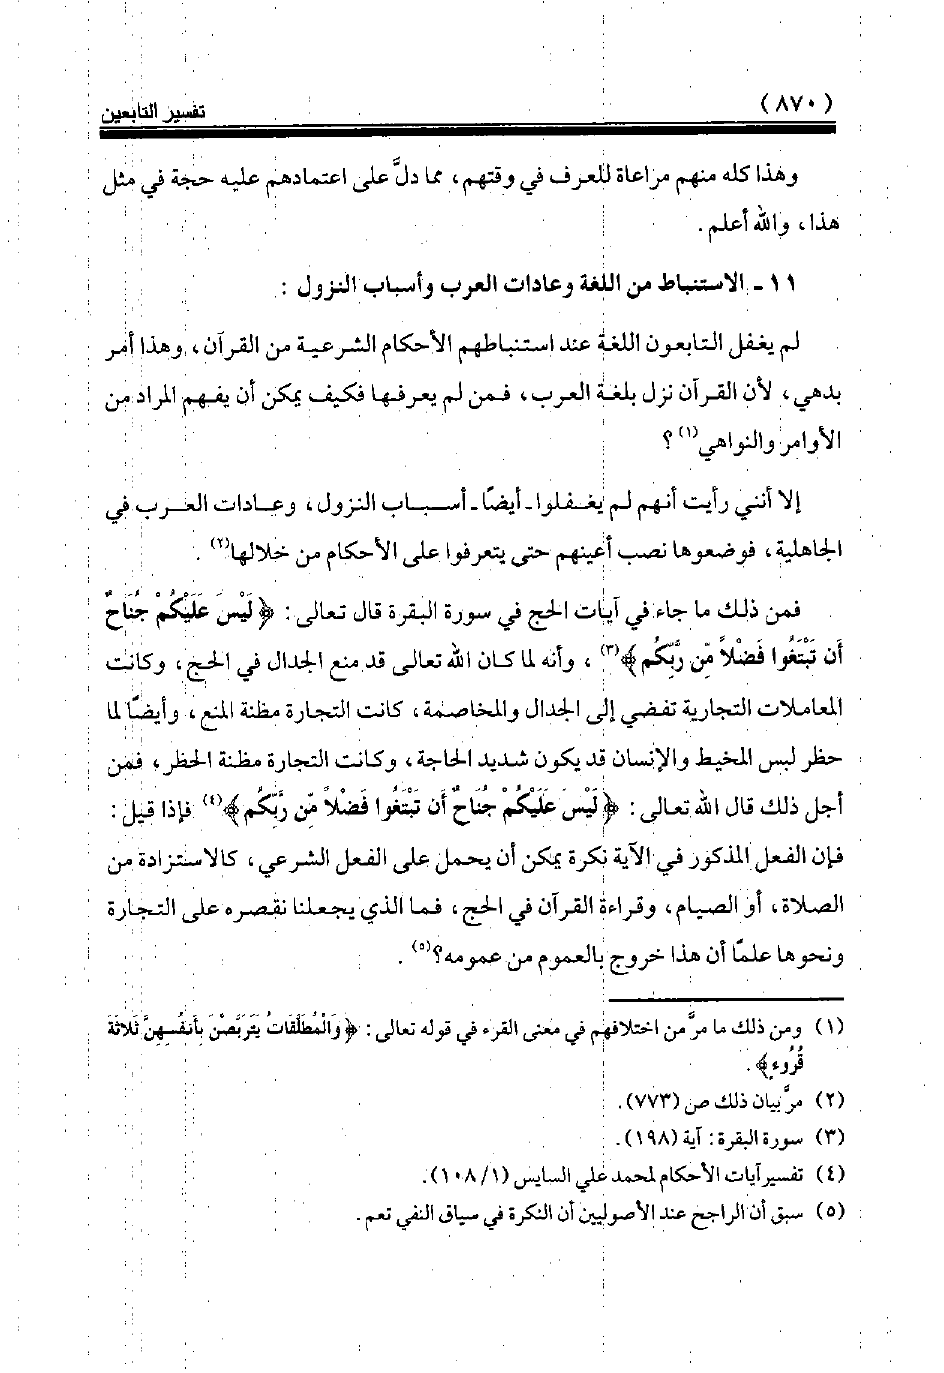 (٨٧٠)
تفسير التابعين
وهذا كله منهم مراعاة للعرف في وقتهم، مما دلَّ على اعتمادهم عليه حجة في مثل
هذا، والله أعلم.
١١ ـ الاستنباط من اللغة وعادات العرب وأسباب النزول:
لم يغفل التابعون اللغة عند استنباطهم الأحكام الشرعية من القرآن، وهذا أمر
بدهي، لأن القرآن نزل بلغة العرب، فمن لم يعرفها فكيف يمكن أن يفهم المراد من
الأوامر والنواهي(١)؟
إلا أنني رأيت أنهم لم يغفلوا ـ أيضًا ـ أسباب النزول، وعادات العرب في
الجاهلية، فوضعوها نصب أعينهم حتى يتعرفوا على الأحكام من خلالها(٢).
فمن ذلك ما جاء في آيات الحج في سورة البقرة قال تعالى: ﴿لَيْسَ عَلَيْكُمْ جُنَاحٌ
أَن تَبْتَغُوا فَضْلاً مِّن رَّبِّكُم﴾(٣)، وأنه لما كان الله تعالى قد منع الجدال في الحج، وكانت
المعاملات التجارية تفضي إلى الجدال والمخاصمة، كانت التجارة مظنة المنع، وأيضًا لما
حظر لبس المخيط والإنسان قد يكون شديد الحاجة، وكانت التجارة مظنة الحظر، فمن
أجل ذلك قال الله تعالى: ﴿لَيْسَ عَلَيْكُمْ جُنَاحٌ أَن تَبْتَغُوا فَضْلاً مِّن رَّبِّكُم﴾(٤) فإذا قيل:
فإن الفعل المذكور في الآية نكرة يمكن أن يحمل على الفعل الشرعي، كالاستزادة من
الصلاة، أو الصيام، وقراءة القرآن في الحج، فما الذي يجعلنا نقصره على التجارة
ونحوها علمًا أن هذا خروج بالعموم من عمومه؟(٥).
(١) ومن ذلك ما مرَّ من اختلافهم في معنى القرء في قوله تعالى: ﴿وَالْمُطَلَّقَاتُ يَتَرَبَّصْنَ بِأَنفُسِهِنَّ ثَلاثَةَ
قُرُوءٍ﴾.
(٢) مرَّ بيان ذلك ص (٧٧٣).
(٣) سورة البقرة: آية (١٩٨).
(٤) تفسير آيات الأحكام لمحمد علي السايس (١/١٠٨).
(٥) سبق أن الراجح عند الأصوليين أن النكرة في سياق النفي تعم.